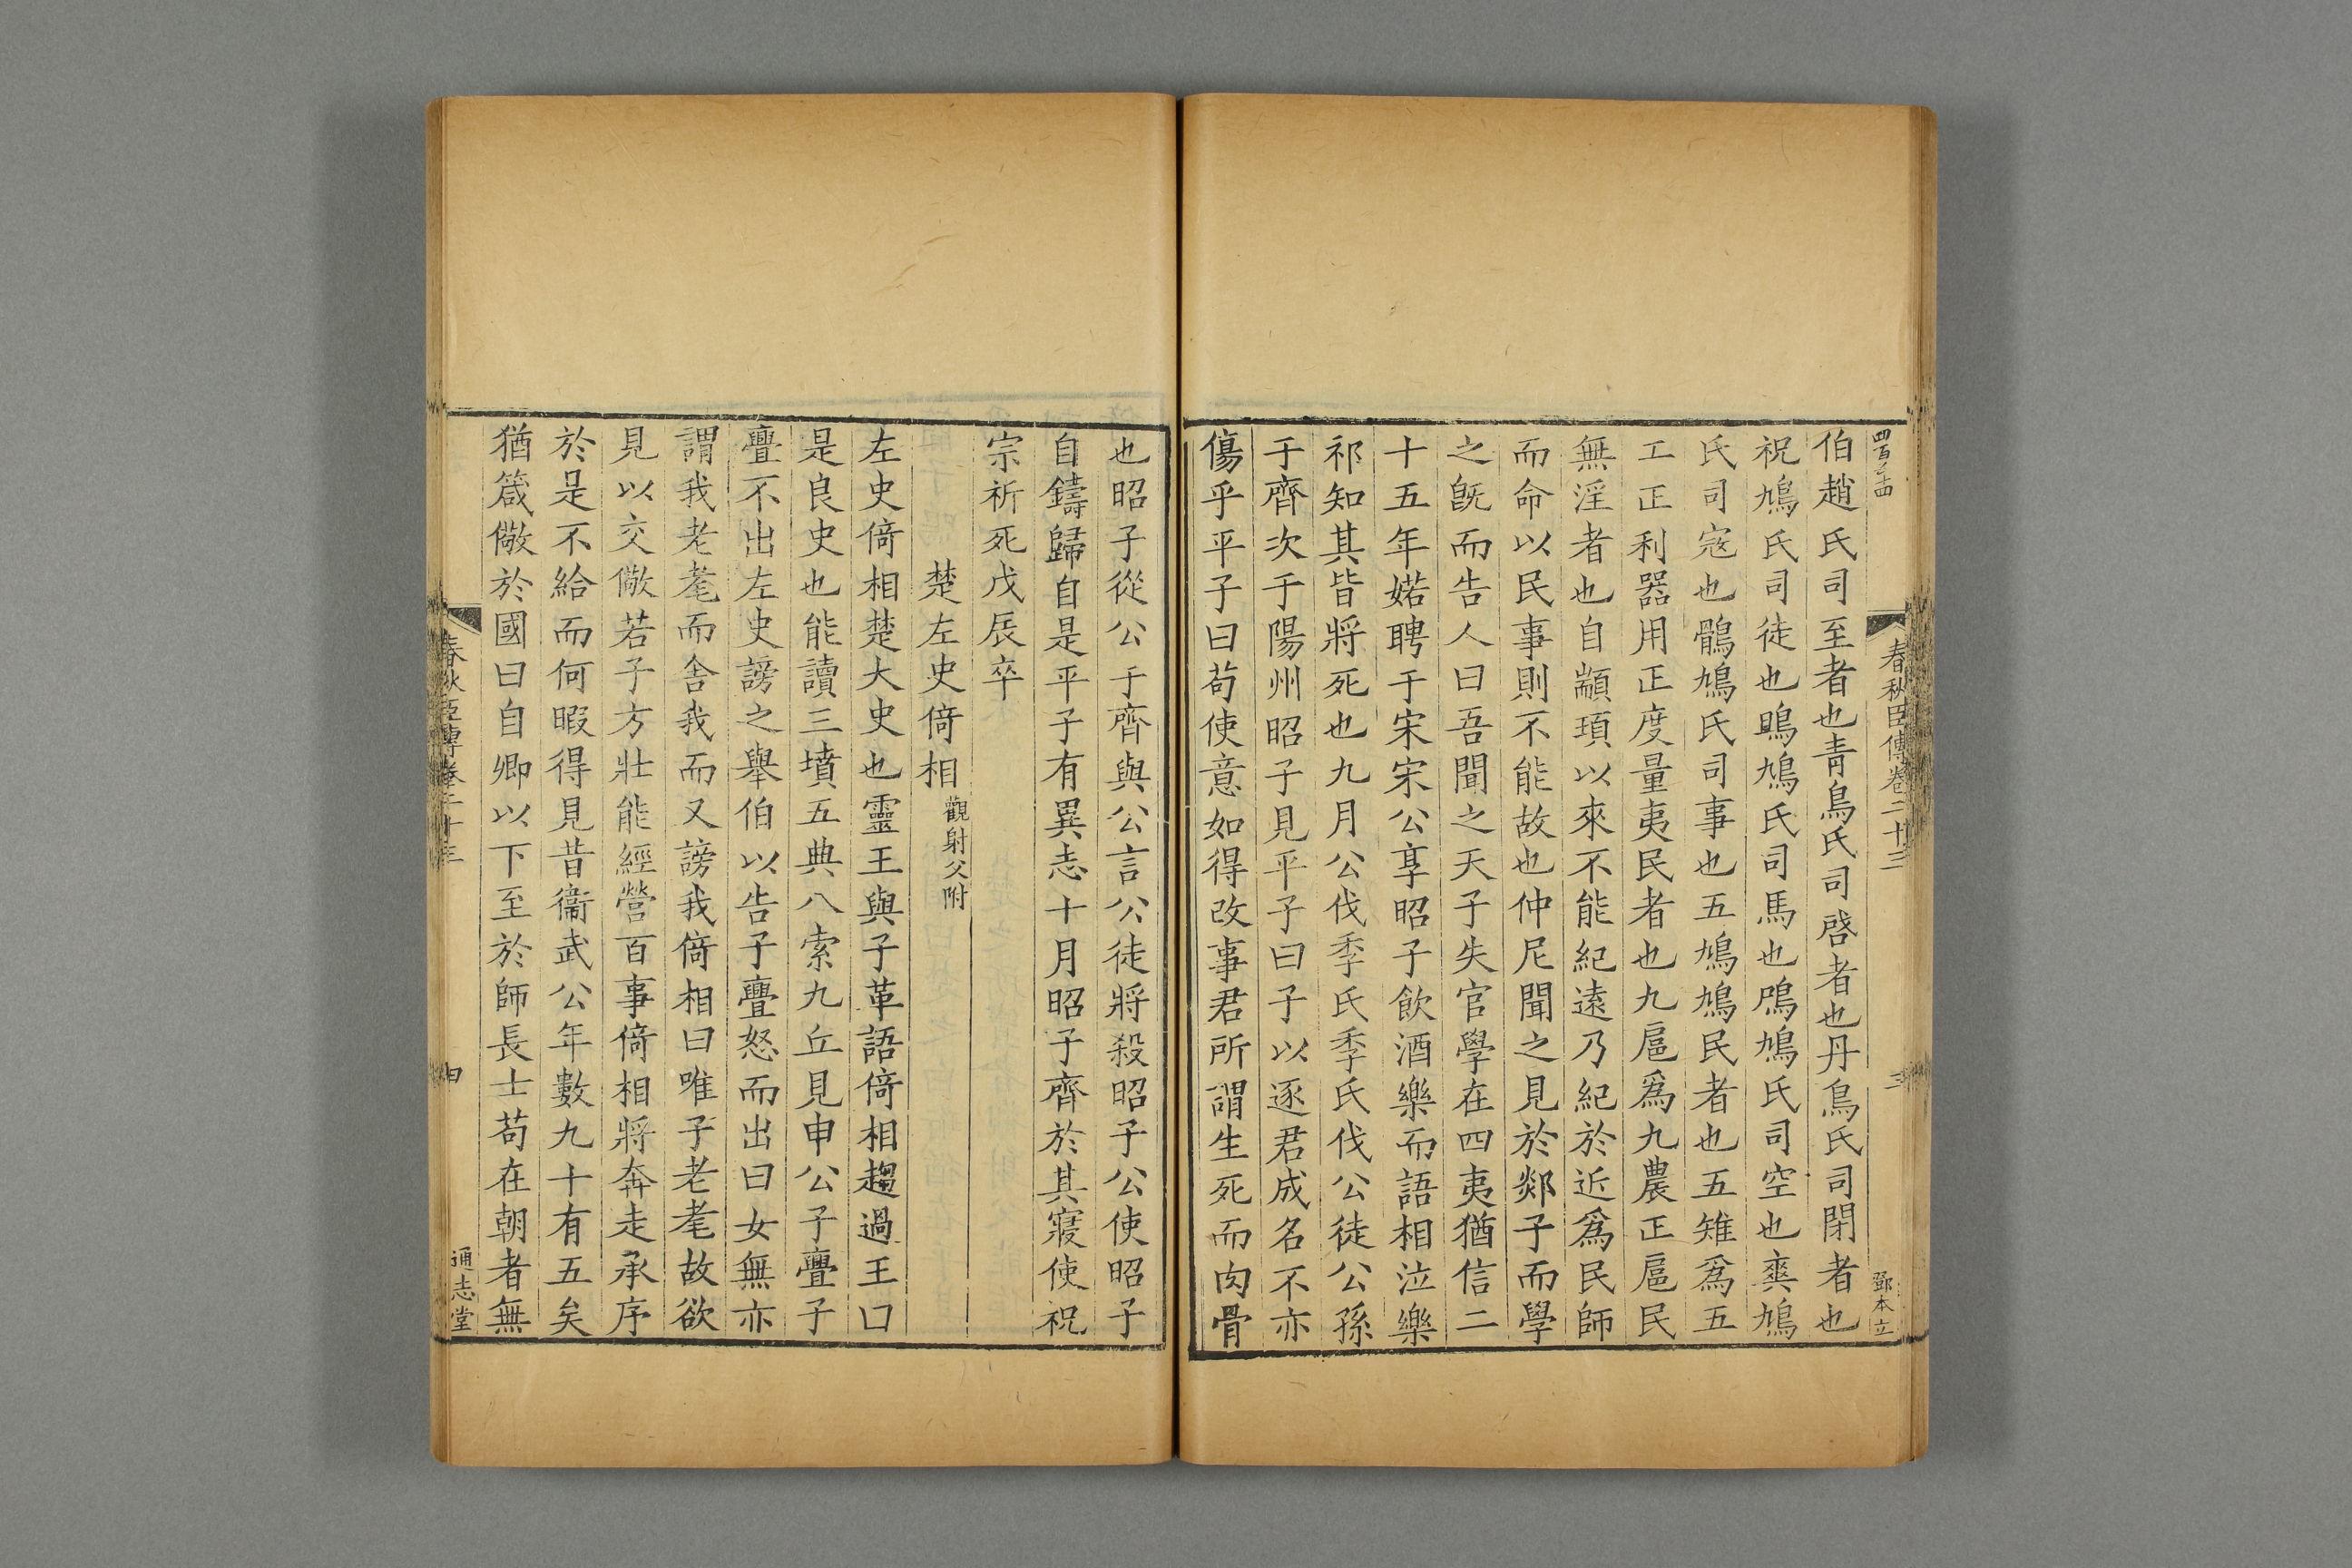 春秋臣傳卷二十三
三
鄧本立
伯趙氏司至者也青鳥氏司啓者也丹鳥氏司閉者也
祝鳩氏司徒也鴡鳩氏司馬也鳲鳩氏司空也爽鳩
氏司寇也鶻鳩氏司事也五鳩鳩民者也五雉爲五
工正利器用正度量夷民者也九扈爲九農正扈民
無淫者也自顓頊以來不能紀遠乃紀於近爲民師
而命以民事則不能故也仲尼聞之見於郯子而學
之旣而告人曰吾聞之天子失官學在四夷猶信二
十五年婼聘于宋宋公享昭子飲酒樂而語相泣樂
祁知其皆將死也九月公伐季氏季氏伐公徒公孫
于齊次于陽州昭子見平子曰子以逐君成名不亦
傷乎平子曰苟使意如得改事君所謂生死而肉骨
也昭子從公于齊與公言公徒將殺昭子公使昭子
自鑄歸自是平子有異志十月昭子齊於其寢使祝
宗祈死戊辰卒
楚左史倚相觀射父附
左史倚相楚大史也靈王與子革語倚相趨過王曰
是良史也能讀三墳五典八索九丘見申公子亹子
亹不出左史謗之舉伯以告子亹怒而出曰女無亦
謂我老耄而舍我而又謗我倚相曰唯子老耄故欲
見以交儆若子方壯能經營百事倚相將奔走承序
於是不給而何暇得見昔衞武公年數九十有五矣
猶箴儆於國曰自卿以下至於師長士苟在朝者無
春秋臣傳卷二十三
四
通志堂